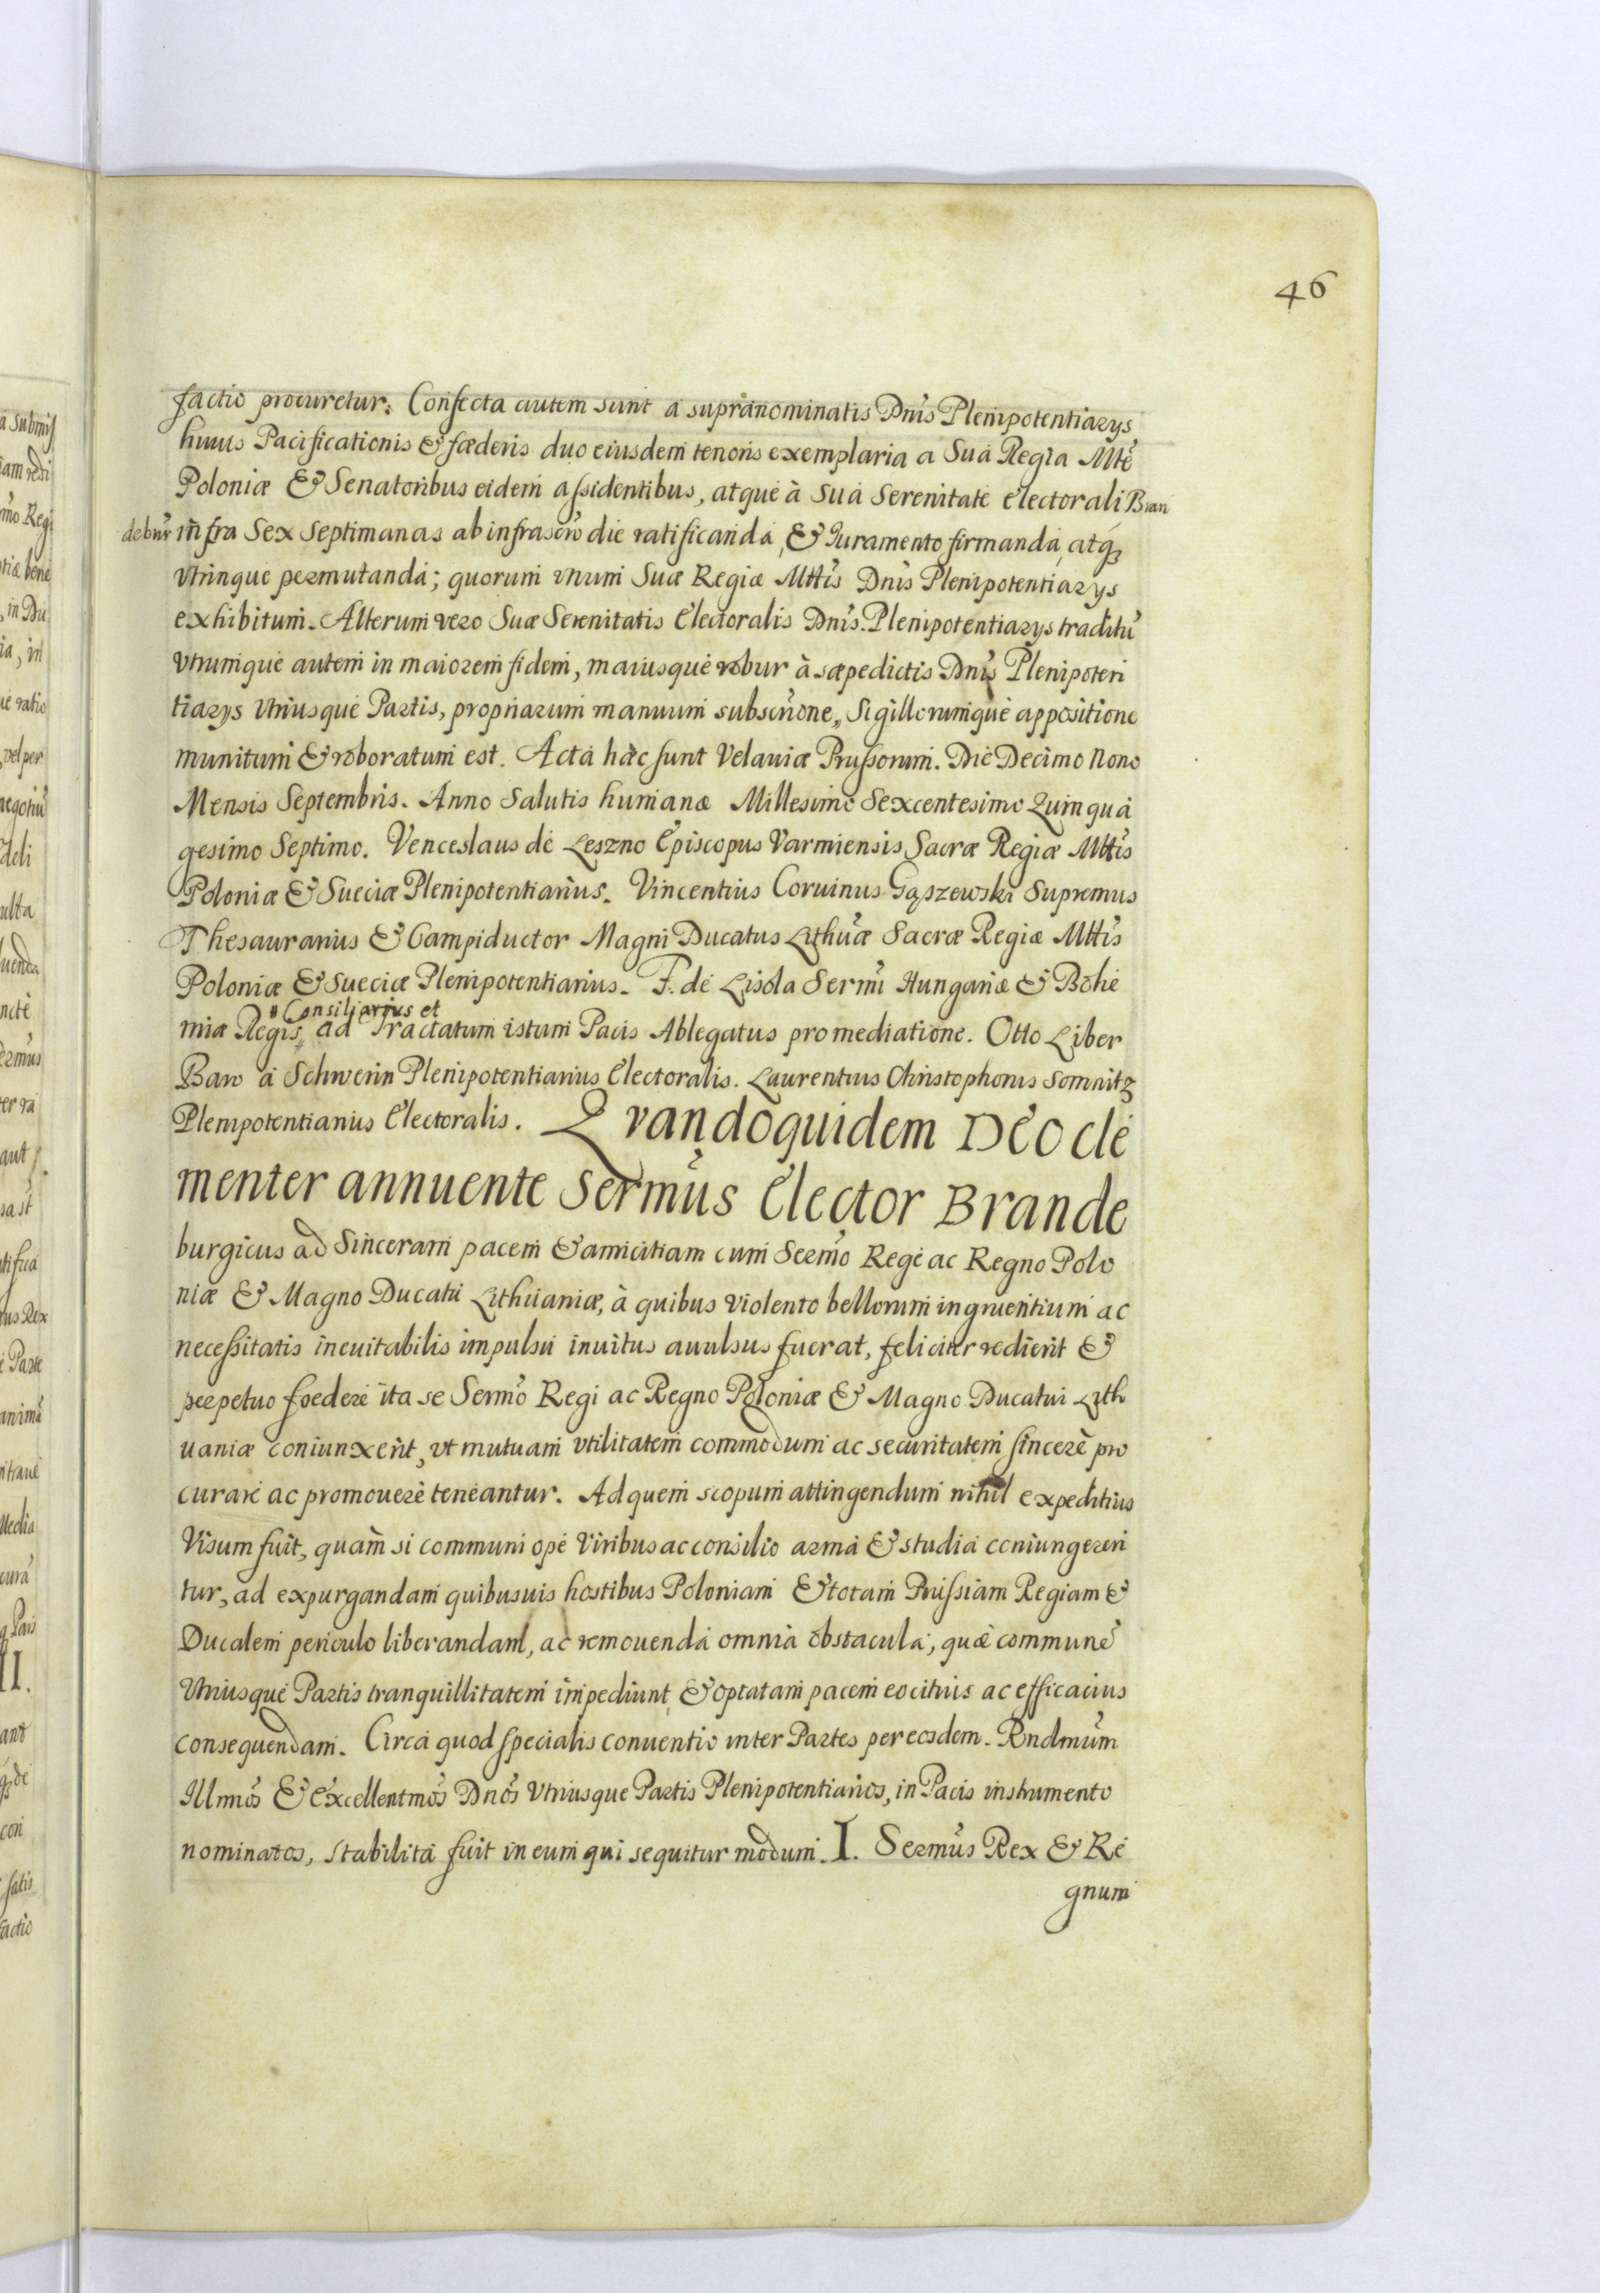 46
factio procuretur. Confecta autem sunt a supranominatis Dnis Plenipotentiarys
huius Pacificationis & fœderis duo eiusdem tenoris exemplaria a Sua Regia Mtte
Poloniæ & Senatoribus eidem assidentibus, atque à sua Serenitate Electorali Bran
deburᵍ infra Sex Septimanas ab infrascrō die ratificanda, & Iuramento firmanda, atq3
vtrinque permutanda; quorum vnum Suæ Regiæ Mttis Dnis Plenipotentiarys
exhibitum. Alterum vero Suæ Serenitatis Electoralis Dnis. Plenipotentiarys traditū
vtrumque autem in maiorem fidem, maiusque robur à sæpedictis Dnis Plenipoten
tiarys vtriusque Partis, propriarum manuum subscrīone, Sigillorumque appositione
munitum & roboratum est. Acta hæc sunt Velaviæ Prussorum. Die Decimo Nono
Mensis Septembris. Anno Salutis humanæ Millesimo Sexcentesimo Quinqua
gesimo Septimo. Venceslaus de Leszno Episcopus Varmiensis Sacræ Regiæ Mttis
Poloniæ & Sueciæ Plenipotentiarius. Vincentius Coruinus Gąszewski Supremus
Thesaurarius & Campiductor Magni Ducatus Lithuæ Sacræ Regiæ Mttis
Poloniæ & Sueciæ Plenipotentiarius. F. de Lisola Sermi Hungariæ & Bohe
Consiliarius et
miæ Regis ad Tractatum istum Pacis Ablegatus pro mediatione. Otto Liber
Baro a Schwerin Plenipotentiarius Electoralis. Laurentius Christophorus Somnitz
Plenipotentiarius Electoralis. Qvandoquidem DEO cle
menter annuente Sermus Elector Brande
burgicus ad Sinceram pacem & amicitiam cum Sermo Rege ac Regno Polo
niæ & Magno Ducatu Lithuaniæ, à quibus violento bellorum ingruentium ac
necessitatis ineuitabilis impulsu inuitus auulsus fuerat, feliciter redierit &
perpetuo foedere ita se Sermo Regi ac Regno Poloniæ & Magno Ducatui Lith
uaniæ coniunxerit, vt mutuam vtilitatem commodum ac securitatem sincerè pro
curare ac promouere teneantur. Ad quem scopum attingendum nihil expeditius
Visum fuit, quàm si communi ope viribus ac consilio arma & studia coniungeren
tur, ad expurgandam quibusuis hostibus Poloniam & totam Prussiam Regiam &
Ducalem periculo liberandam, ac remouenda omnia obstacula, quæ communē
Vtriusque Partis tranquillitatem impediunt & optatam pacem eo citius ac efficacius
consequendam. Circa quod specialis conuentio inter Partes per eosdem. Rndmum
Illmos & Excellentmos Dnos Vtriusque Partis Plenipotentiarios, in Pacis instrumento
nominatos, stabilita fuit in eum qui sequitur modum. I. Sermus Rex & Re
gnum